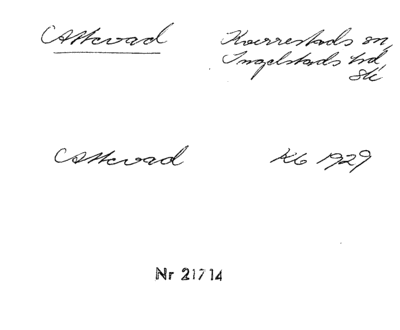 Attevad Kverrestads sn,
Ingelstads hd,
Sk
Attevad K6 1929
Nr 21714